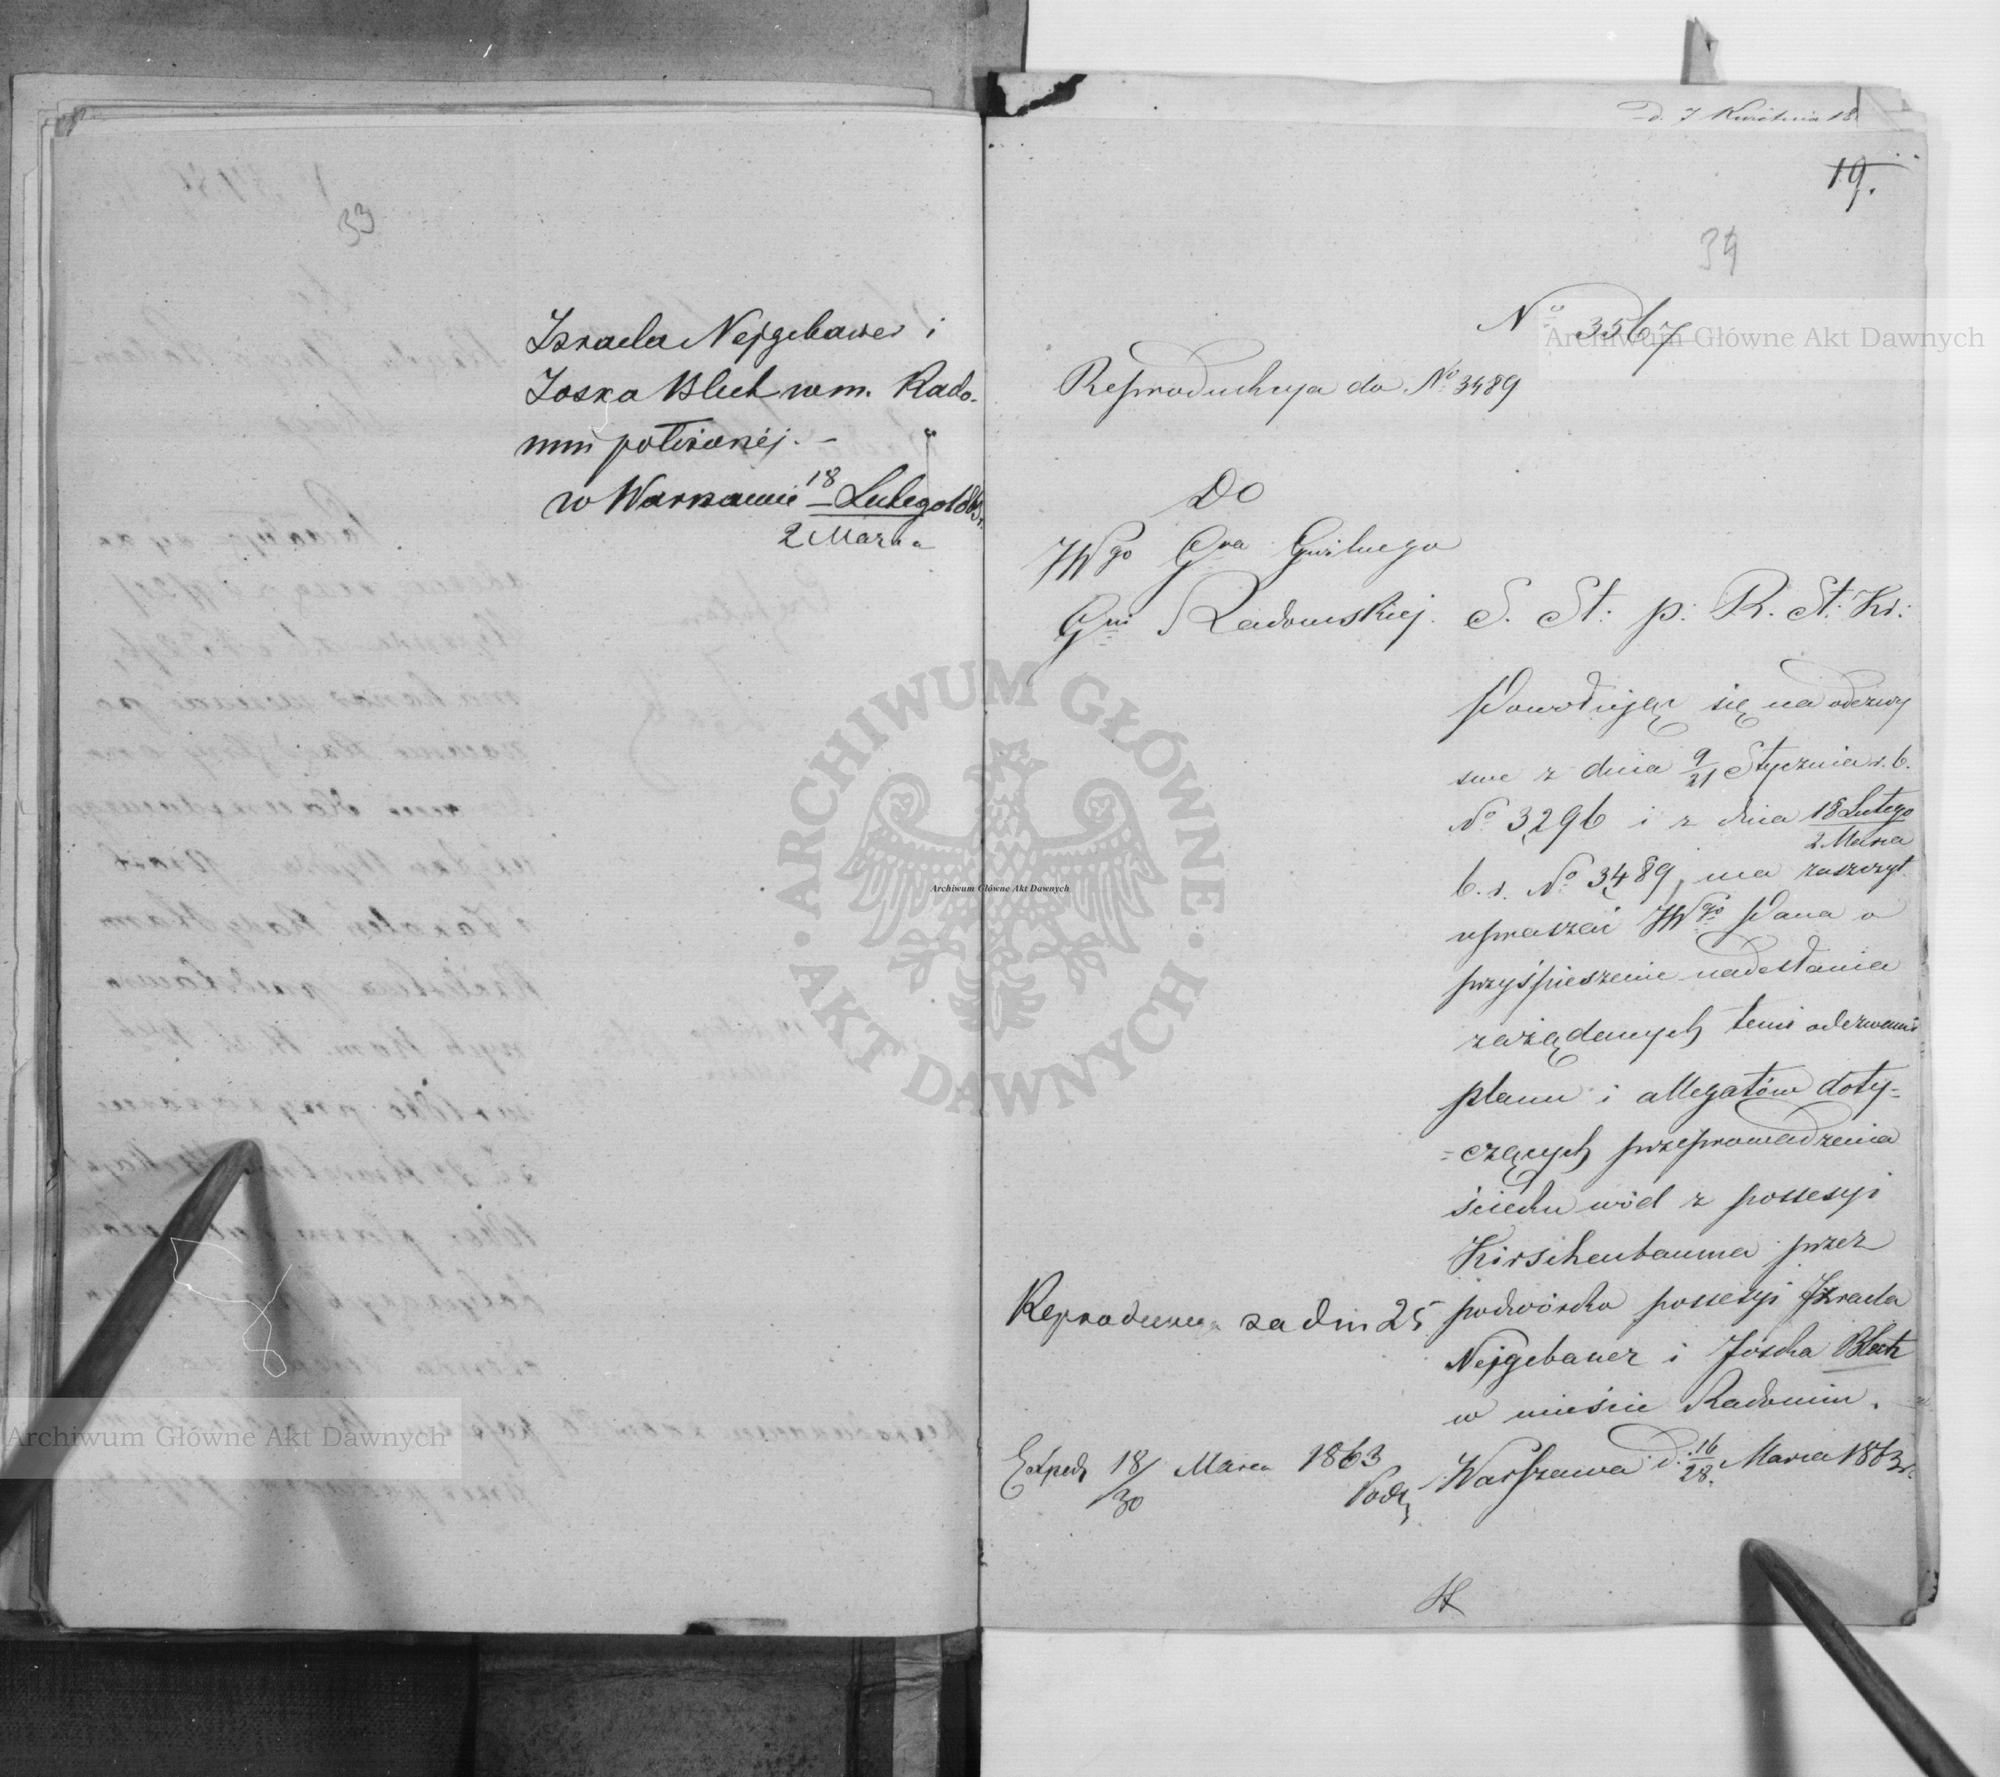 33
Izraela Nejgebawer i
Joska Blech w m. Rado-
miu położonéj. —
w Warszawie 18 Lutego 1863 r.
2 Marca
d. 7 Kwietnia 18
19.
34
No 3567
Reprodukcya do No 3489
Do
JWgo Gra Cywilnego
Gni Radomskiej. S. St: p: R. St: Kr:
Powołując się na odezwy
swe z dnia 9/21 Stycznia r. b.
No 3296 i z dnia 18 Lutego
2 Marca
b. r. No 3489, ma zaszczyt
upraszać JWgo Pana o
przyśpieszenie nadesłania
zażądanych temi odezwami
planu i allegatów doty-
=czących przeprowadzenia
ścieku wód z possesyi
Kirschenbauma przez
podwórko possesyi Izraela
Nejgebauer i Joska Blech
w mieście Radomiu.
Reprodukcya za dni 25
Warszawa d. 16/28 Marca 1863 r.
Exped. 18/30 Marca 1863
Archiwum Główne Akt Dawnych
ARCHIWUM GŁÓWNE • AKT DAWNYCH •
Archiwum Główne Akt Dawnych
Archiwum Główne Akt Dawnych